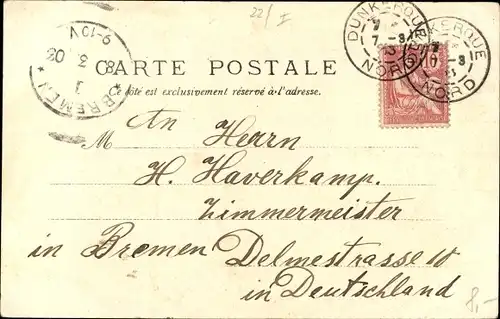 22/I
DUNKERQUE
7 -3
NORD
DUNKERQUE
7 -3
NORD
9-10 V
8 3 03
* BREMEN *
1
CARTE POSTALE
Ce côté est exclusivement réservé à l'adresse.
An Herrn
M H. Haverkamp.
Zimmermeister
in Bremen Delmestrasse 10
in Deutschland
8,-